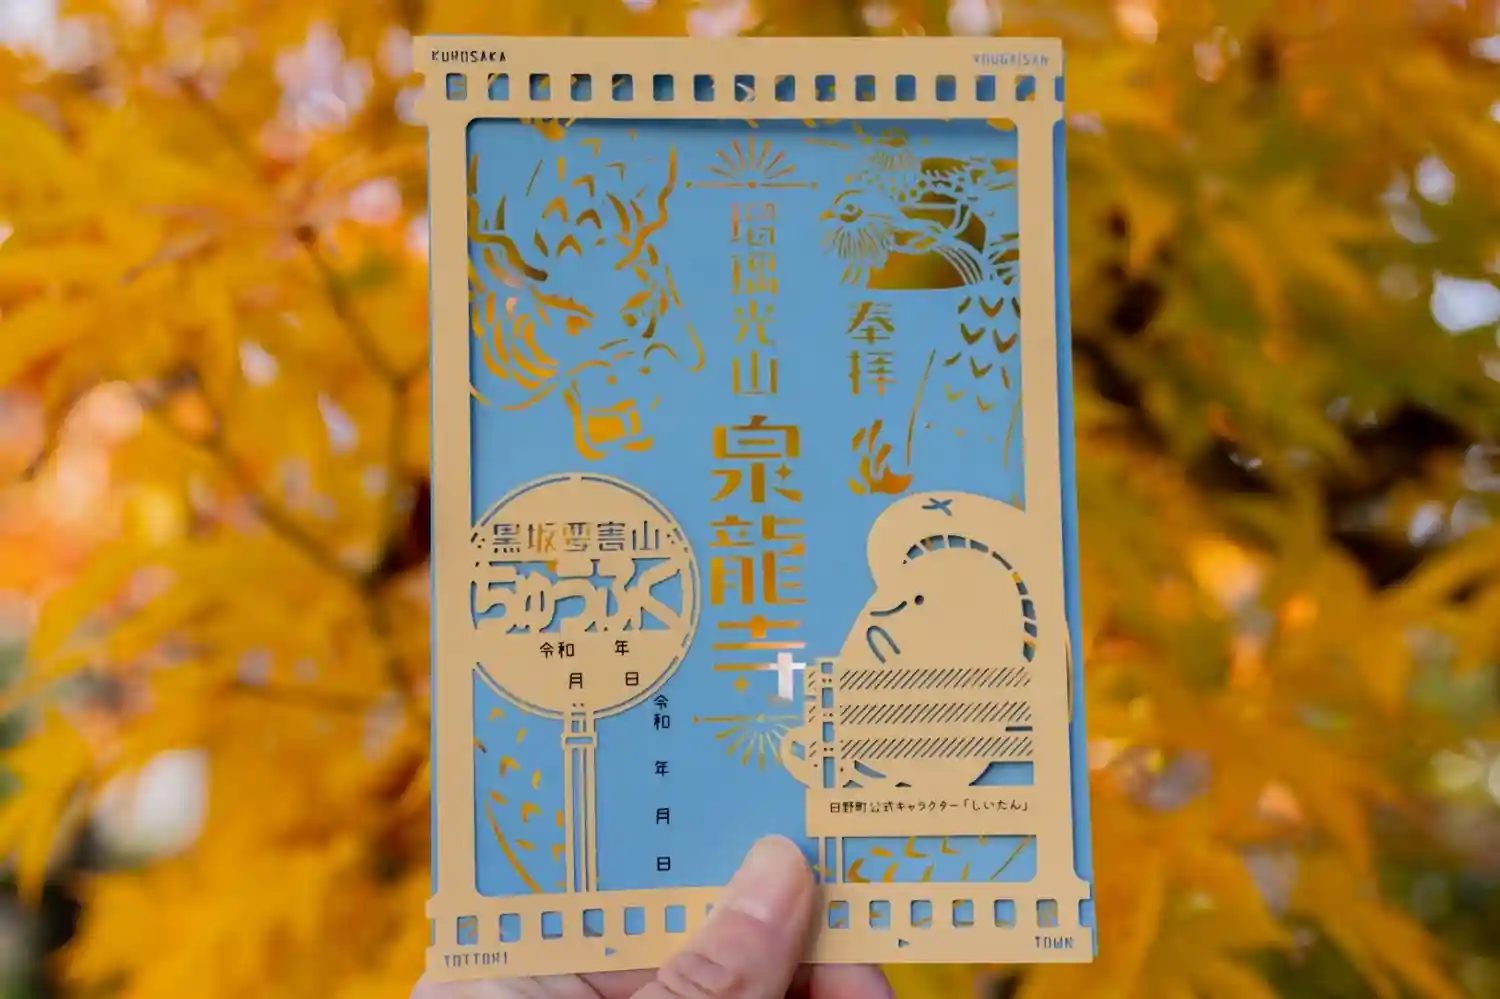 KUROSAKA
YOUGAISAN
奉拝
瑠璃光山
泉龍寺
黒坂要害山
ちゅうふく
令和 年
月 日
令和 年 月 日
日野町公式キャラクター「しいたん」
TOTTORI
TOWN